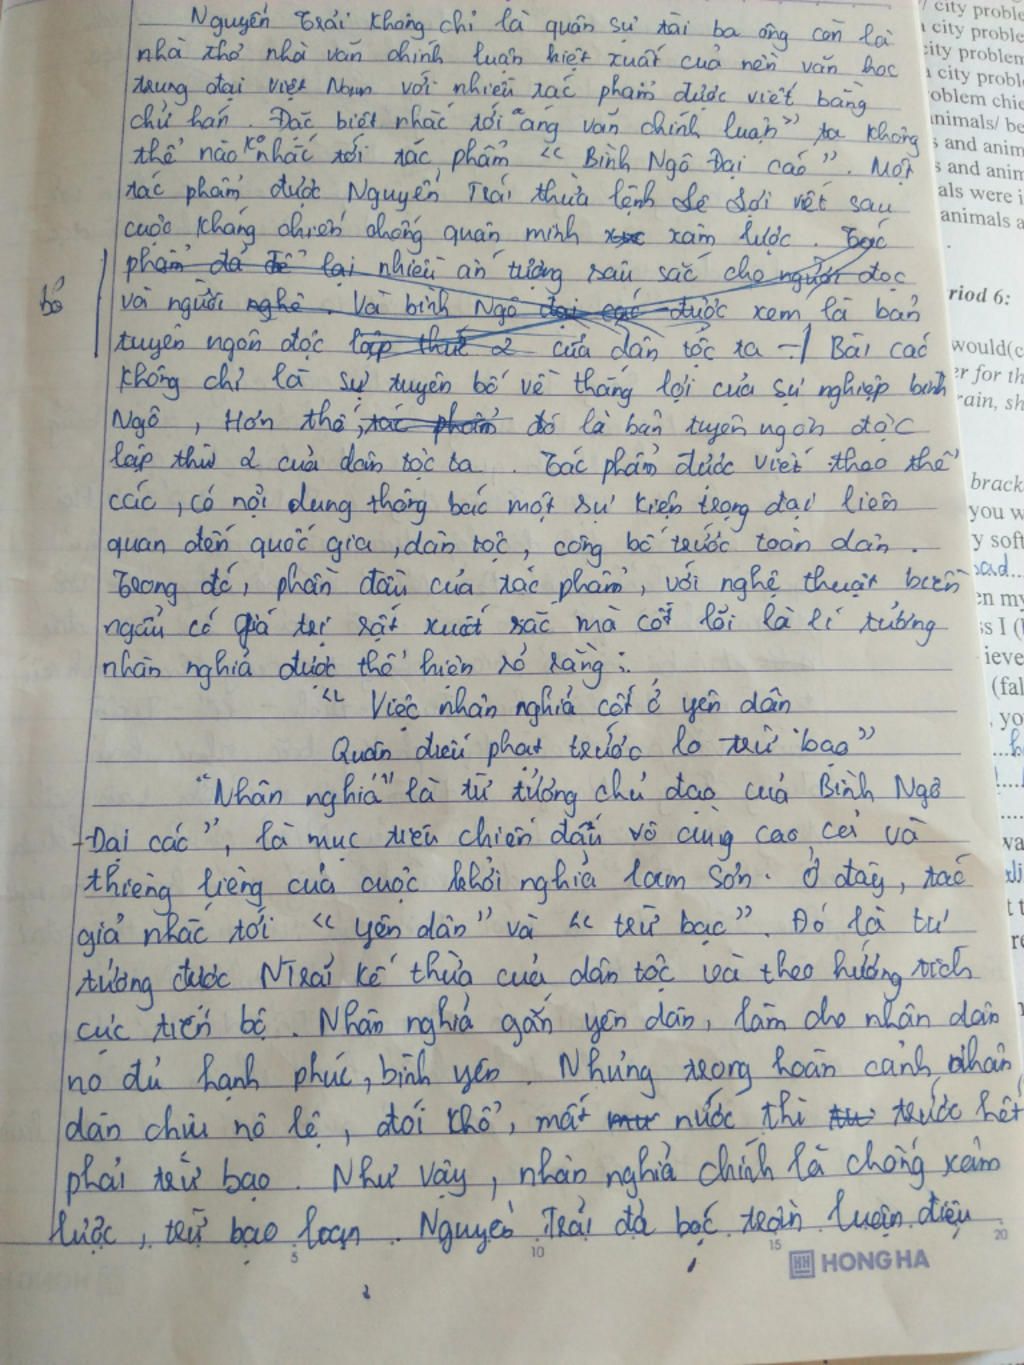 Nguyễn Trãi không chỉ là quân sự tài ba ông còn là
nhà thơ nhà văn chính luận kiệt xuất của nền văn học
trung đại Việt Nam với nhiều tác phẩm được viết bằng
chữ hán. Đặc biệt nhắc tới "áng văn chính luận" ta không
thể nào ko nhắc tới tác phẩm "Bình Ngô Đại cáo". Một
tác phẩm được Nguyễn Trãi thừa lệnh Lê Lợi viết sau
cuộc kháng chiến chống quân minh xâm lược. Tác
phẩm đã để lại nhiều ấn tượng sâu sắc cho người đọc
bỏ
và người nghe. Và bình Ngô đại cáo được xem là bản
tuyên ngôn độc lập thứ 2 của dân tộc ta - Bài cáo
không chỉ là sự tuyên bố về thắng lợi của sự nghiệp bình
Ngô, Hơn thế, tác phẩm đó là bản tuyên ngôn độc
lập thứ 2 của dân tộc ta. Tác phẩm được viết theo thể
cáo, có nội dung thông báo một sự kiện trọng đại liên
quan đến quốc gia, dân tộc, công bố trước toàn dân.
Trong đó, phần đầu của tác phẩm, với nghệ thuật biền
ngẫu có giá trị rất xuất sắc mà cốt lõi là lí tưởng
nhân nghĩa được thể hiện rõ ràng:
"Việc nhân nghĩa cốt ở yên dân
Quân điếu phạt trước lo trừ bạo"
"Nhân nghĩa" là tư tưởng chủ đạo của Bình Ngô
Đại cáo", là mục tiêu chiến đấu vô cùng cao cả và
thiêng liêng của cuộc khởi nghĩa lam Sơn. Ở đây, tác
giả nhắc tới "yên dân" và "trừ bạo". Đó là tư
tưởng được NTrãi kế thừa của dân tộc và theo hướng tích
cực tiến bộ. Nhân nghĩa gắn yên dân, làm cho nhân dân
no đủ hạnh phúc, bình yên. Nhưng trong hoàn cảnh nhân
dân chịu nô lệ, đói khổ, mất nước thì trước hết
phải trừ bạo. Như vậy, nhân nghĩa chính là chống xâm
lược, trừ bạo loạn. Nguyễn Trãi đã bác trần luận điệu
5 10 15 20
HONG HA
city proble
city proble
city problem
city probl
oblem chie
animals/ be
s and anim
s and anim
als were i
animals a
riod 6:
would(c
er for th
rain, sh
brack
you w
y soft